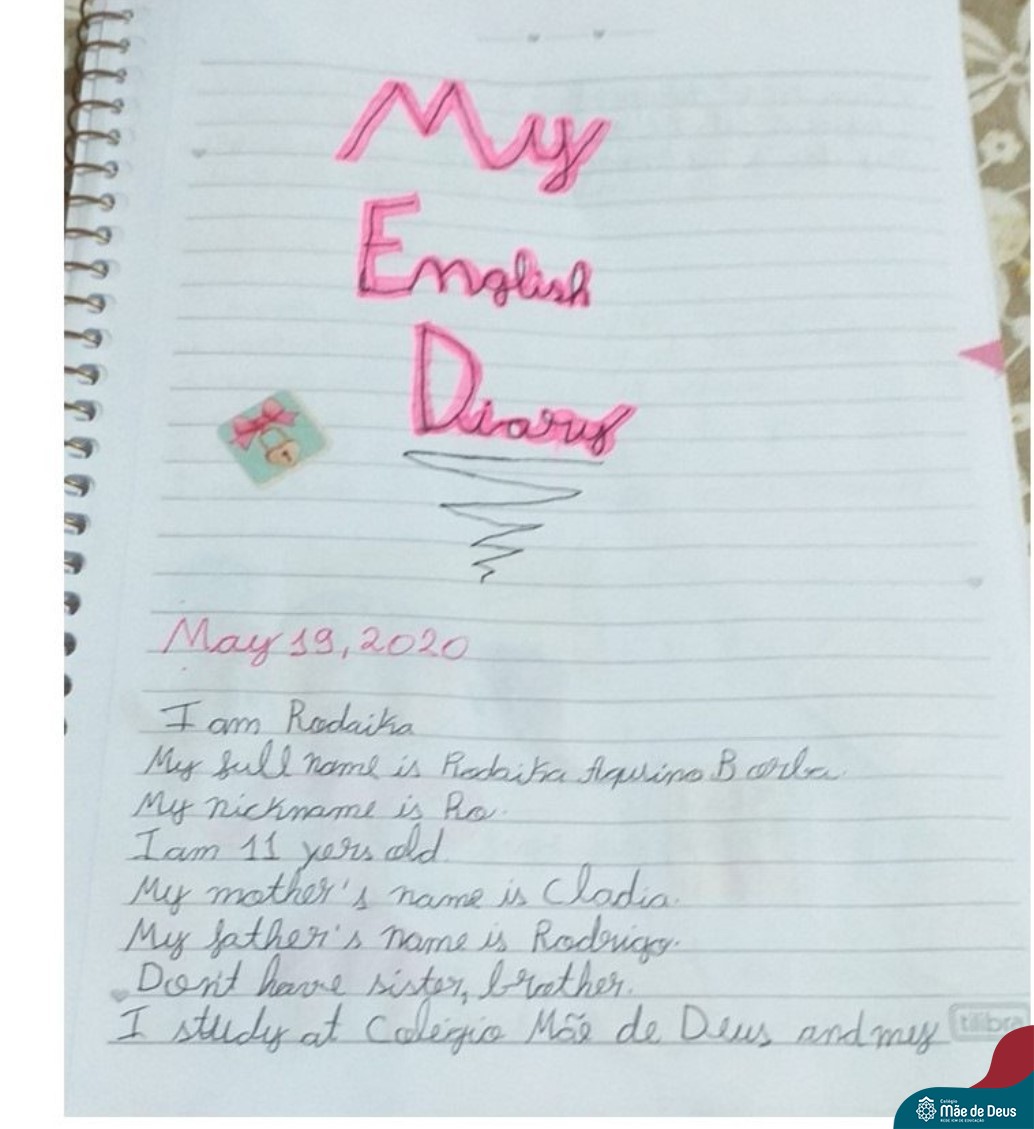 My
English
Diary
May 19, 2020
I am Rodaika
My full name is Rodaika Aquino Borba
My nickname is Ro.
I am 11 yers old.
My mother's name is Cladia.
My father's name is Rodrigo.
Don't have sister, brother.
I study at Colégio Mãe de Deus and my
tilibra
Colégio
Mãe de Deus
REDE ICM DE EDUCAÇÃO